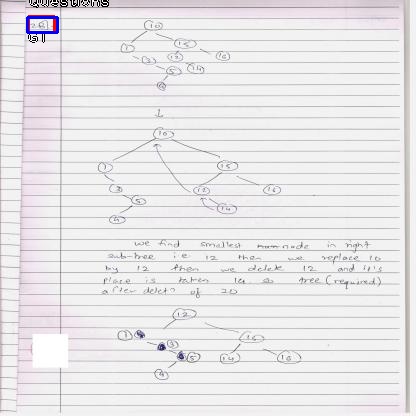 Questions
Q1
10
1
15
3
12
16
5
14
4
↓
10
1
15
3
12
16
5
14
4
we find smallest node in right
sub-tree i.e 12 then we replace 10
by 12 then we delete 12 and it's
place is taken 14 so tree (required)
after delet? of 20
12
1
3
5
14
4